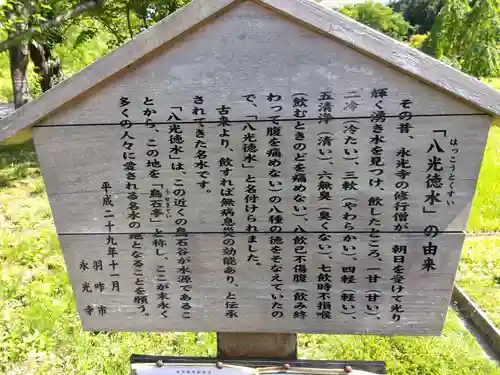 「八光徳水」の由来
はっこうとくすい
その昔、永光寺の修行僧が、朝日を受けて光り
輝く湧き水を見つけ、飲したところ、一甘（甘い）、
二冷（冷たい）、三軟（やわらかい）、四軽（軽い）、
五清浄（清い）、六無臭（臭くない）、七飲時不損喉
（飲むときのどを痛めない）、八飲已不傷腹（飲み終
わって腹を痛めない）の八種の徳をそなえていたの
で、「八光徳水」と名付けられました。
古来より、飲すれば無病息災の効能あり、と伝承
されてきた名水です。
「八光徳水」は、この近くの烏石谷が水源であるこ
とから、この地を「烏石亭」と称し、ここが末永く
多くの人々に愛される名水の里となることを願う。
平成二十九年十一月
羽咋市
永光寺